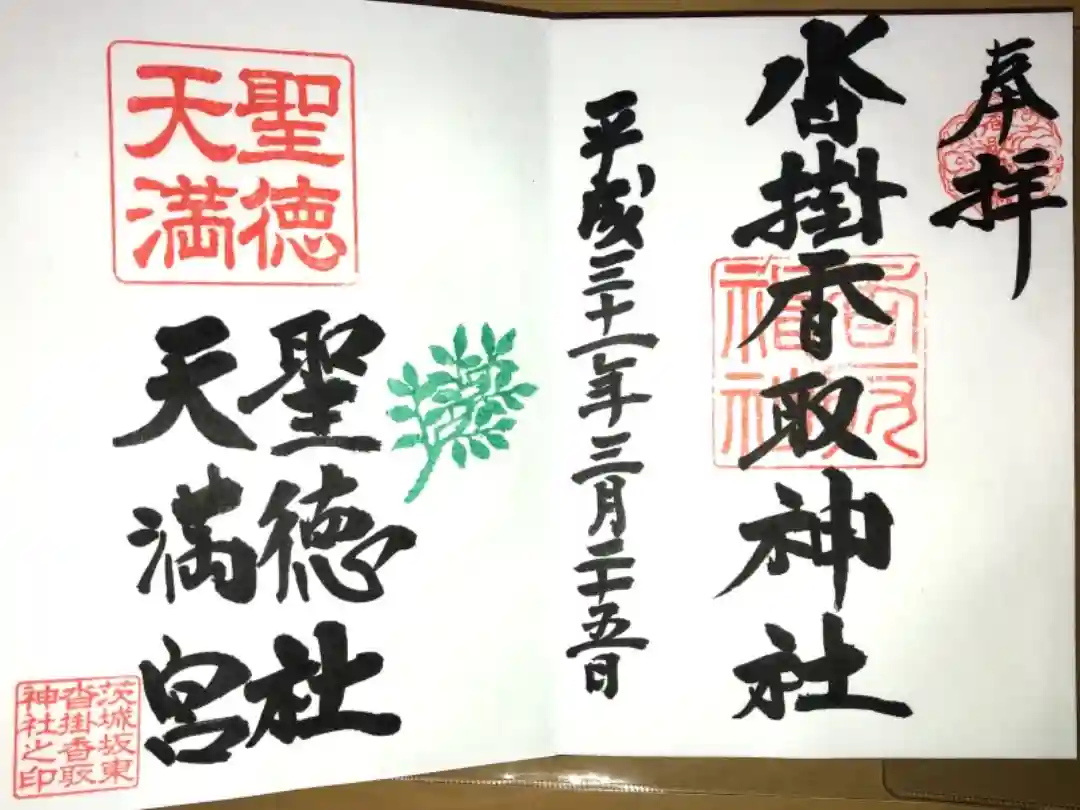 奉拝
沓掛香取神社
平成三十一年三月二十五日
聖徳
天満
聖徳社
天満宮
茨城坂東
沓掛香取
神社之印